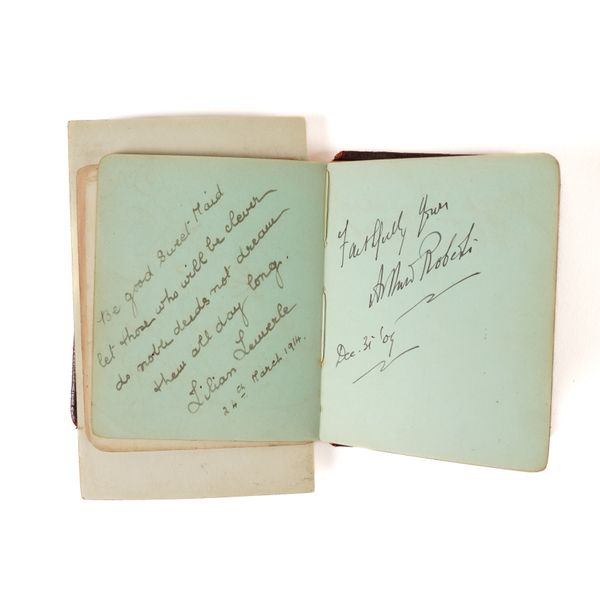 Be good Sweet Maid
let those who will be clever
do noble deeds not dream
them all day long.
Lilian Lewerle
24th March 1914.
Faithfully yours
Arthur Roberts
Dec. 31 '09